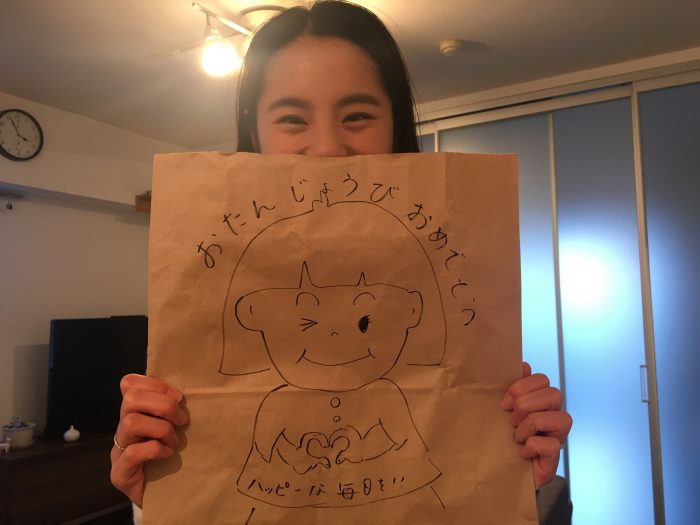 おたんじょうび おめでとう
ハッピーな 毎日を!!